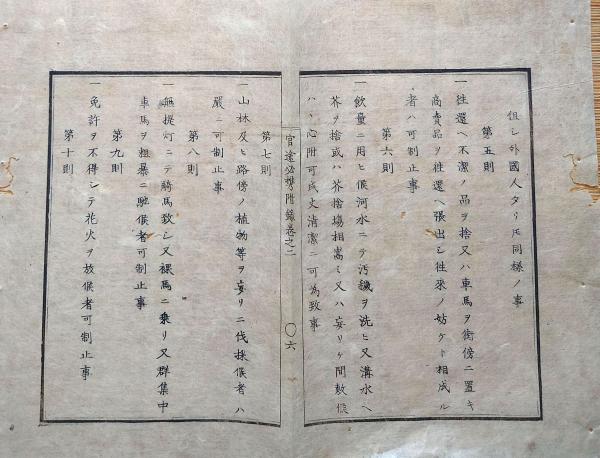 但シ外國人タリ𪜈同様ノ事
第五則
一 往還ヘ不潔ノ品ヲ捨又ハ車馬ヲ街傍ニ置キ
商賣品ヲ往還ヘ張出シ往來ノ妨ケト相成ル
者ハ可制止事
第六則
一 飲量ニ用ヒ候河水ニテ汚穢ヲ洗ヒ又溝水ヘ
芥ヲ捨或ハ芥捨塲相嵩ミ又ハ妄リケ間敷候
ハヽ心附可成丈清潔ニ可為致事
官途必携附録巻之二
〇六
第七則
一 山林及ヒ路傍ノ植物等ヲ妄リニ伐採候者ハ
嚴ニ可制止事
第八則
一 無提灯ニテ騎馬致シ又裸馬ニ乗リ又群集中
車馬ヲ粗暴ニ馳候者可制止事
第九則
一 免許ヲ不得シテ花火ヲ放候者可制止事
第十則